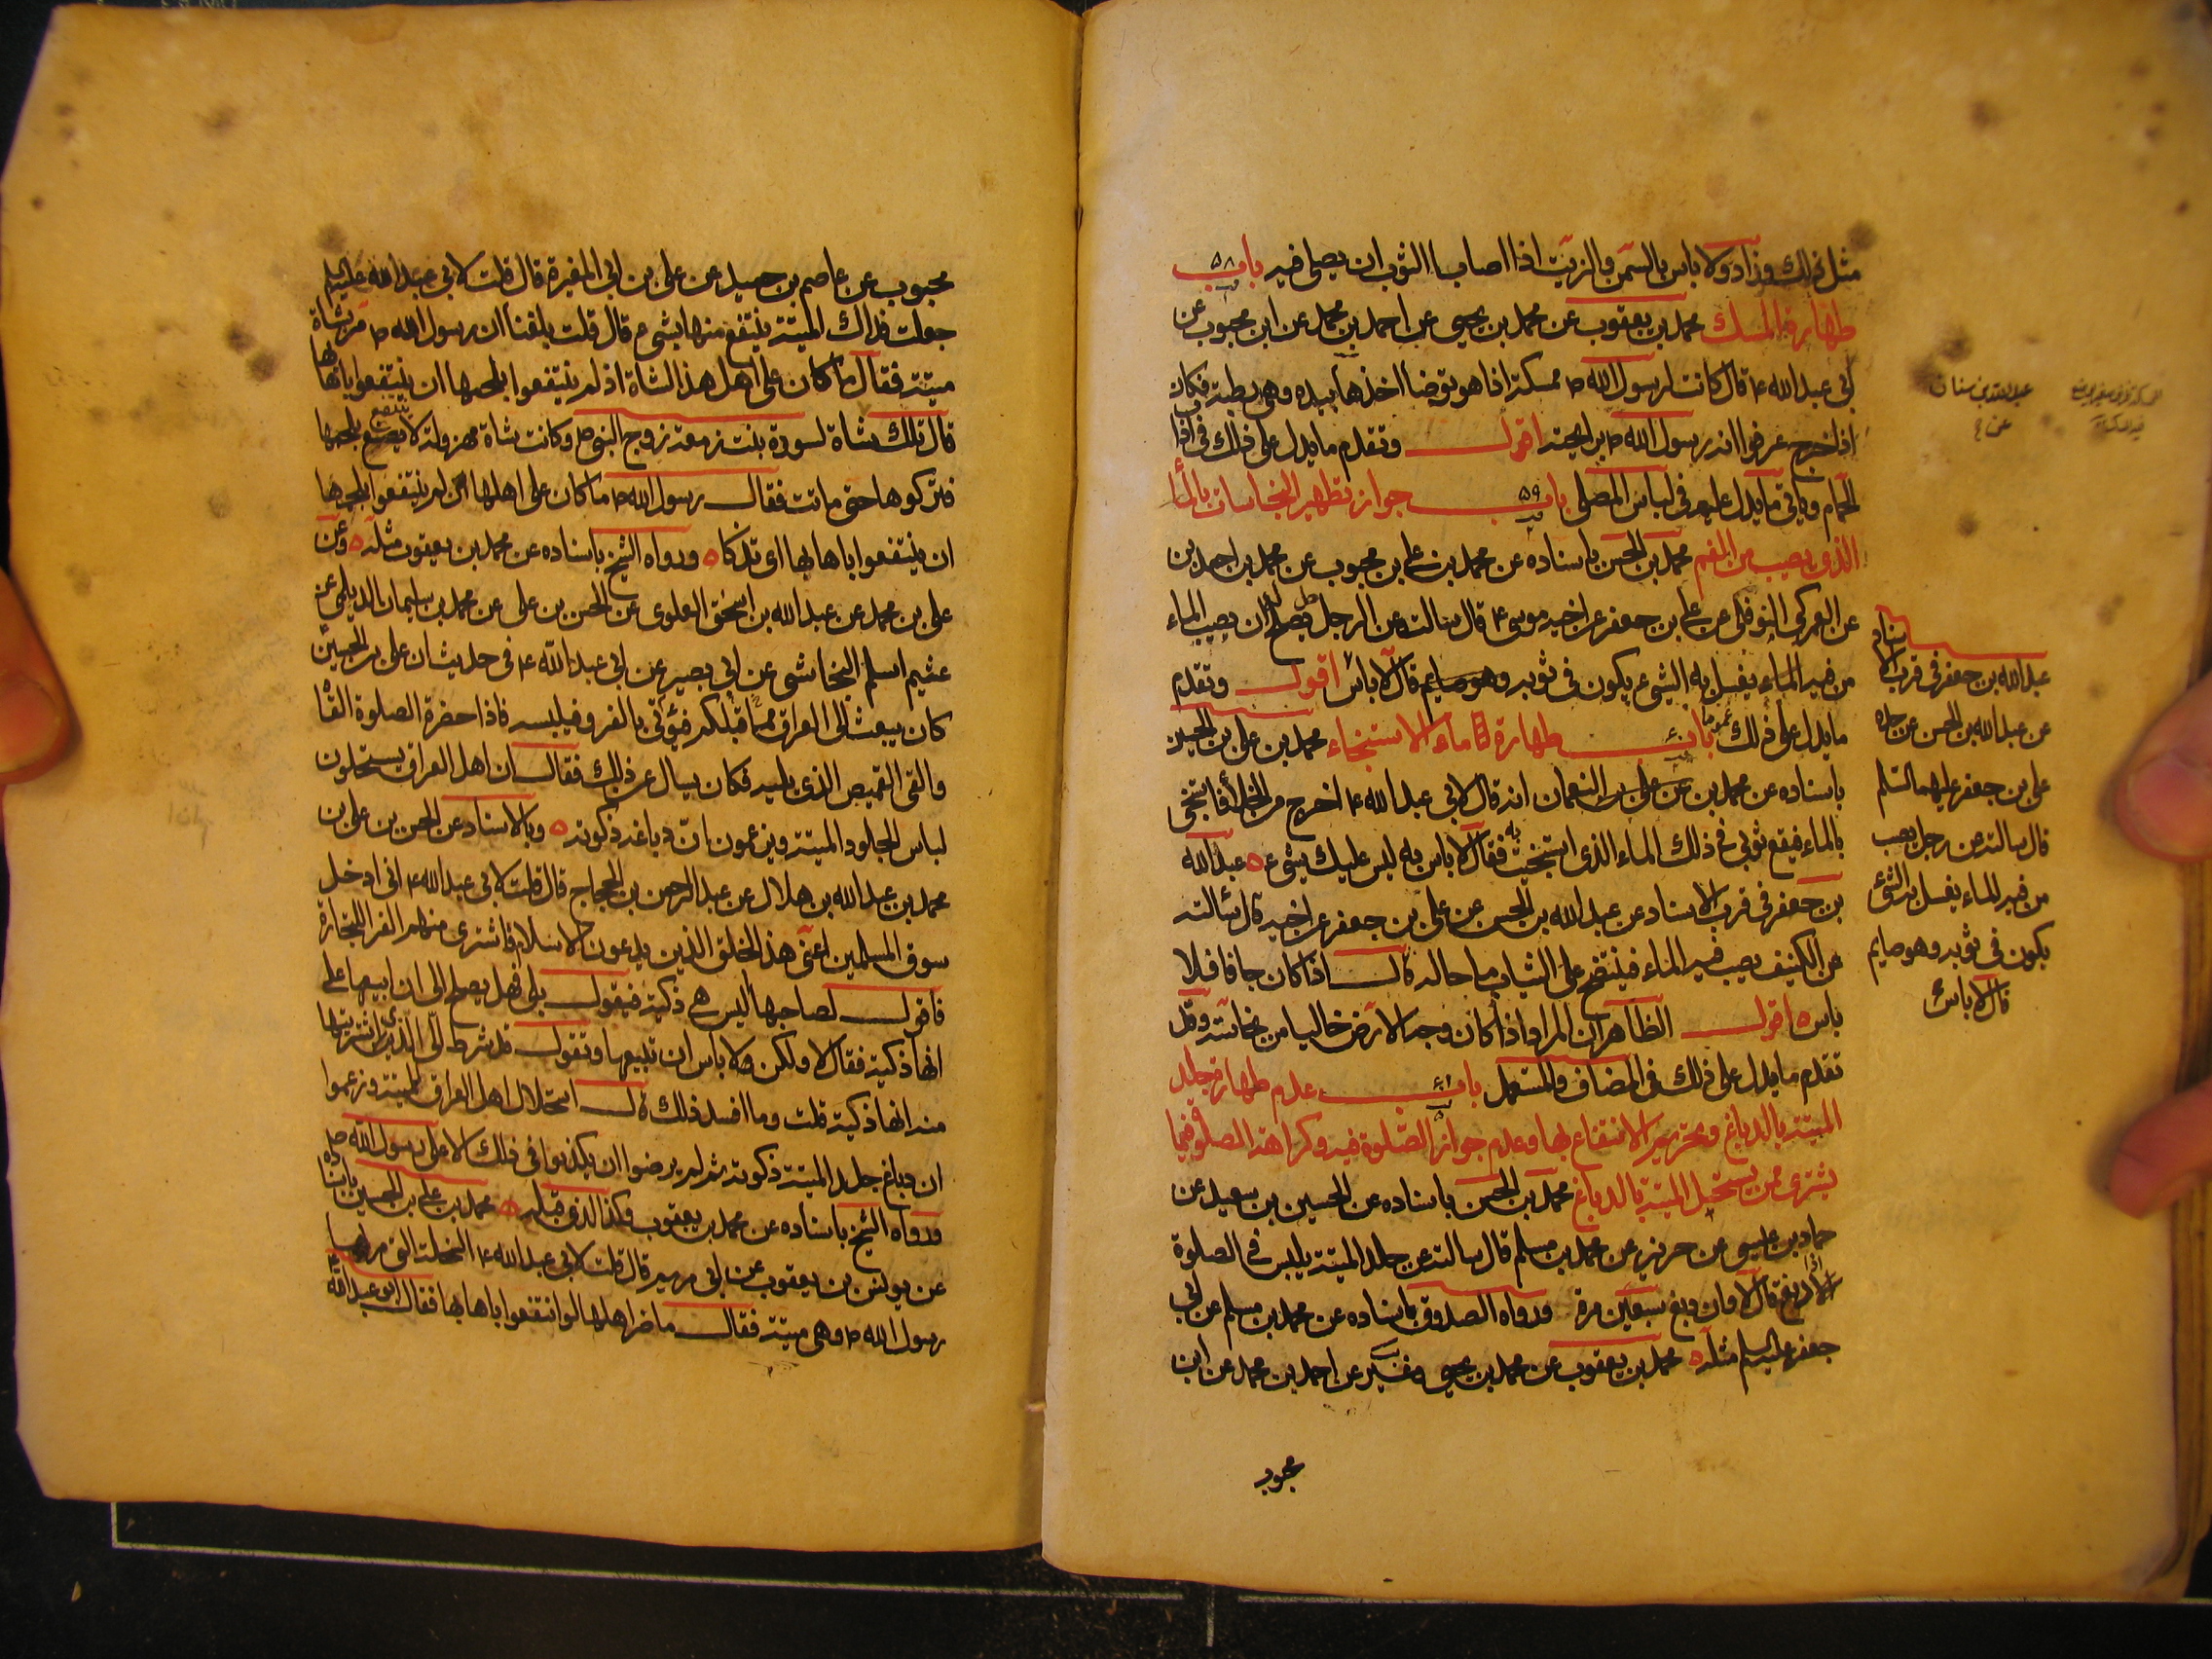 مثل ذلك وزاد ولا باس بالسمن والزيت اذا اصاب الثوب ان يصلى فيه باب ٥٨
طهارة المسك محمد بن يعقوب عن محمد بن يحيى عن احمد بن محمد عن ابن محبوب عن
عبد الله بن سنان عن
ابى عبد الله ع قال كانت لرسول الله ص ممسكة اذا هو توضا اخذها بيده وهى رطبة فكان
اذا خرج عرفوا انه رسول الله ص برايحته اقول وتقدم ما يدل على ذلك فى
الحمام وياتى ما يدل عليه فى لباس المصلى باب ٥٩ جواز تطهير النجاسات بالماء
الذى يصيب من الفم محمد بن الحسن باسناده عن محمد بن على بن محبوب عن محمد بن احمد بن
عن العمركى البوفكى عن على بن جعفر عن اخيه موسى ع قال سالته عن الرجل يصلح له ان يصب الماء
من فيه الماء يغسل به الشىء يكون فى ثوبه وهو صايم قال لا باس اقول وتقدم
ما يدل على ذلك عموما باب طهارة ماء الاستنجاء محمد بن على بن الحسين
باسناده عن محمد بن النعمان انه قال لابى عبد الله ع اخرج من الخلاء فاستنجى
بالماء فيقع ثوبى فى ذلك الماء الذى استنجيت به فقال لا باس به ليس عليك شىء ه عبد الله
بن جعفر فى قرب الاسناد عن عبد الله بن الحسن عن على بن جعفر عن اخيه قال سئالته
عن الكنيف يصب فيه الماء فينتضح على الثياب ما حاله قال اذا كان جافا فلا
باس ه اقول الظاهر ان المراد اذا كان وجه الارض خاليا من نجاسة وقد
تقدم ما يدل على ذلك فى المضاف والمستعمل باب عدم طهارة جلد
الميتة بالدباغ وتحريم الانتفاع بها وعدم جواز الصلوة فيه وكراهة الصلوة فيما
يشترى ممن يستحل الميتة بالدباغ محمد بن الحسن باسناده عن الحسين بن سعيد عن
حماد بن عيسى عن حريز عن محمد بن مسلم قال سالته عن جلد الميتة يلبس فى الصلوة
اذا دبغ قال لا وان دبغ سبعين مرة ورواه الصدوق باسناده عن محمد بن مسلم عن ابى
جعفر عليه السلم مثله ه محمد بن يعقوب عن محمد بن يحيى وغيره عن احمد بن محمد عن ابن
محبوب
عبد الله بن جعفر فى قرب الاسناد
عن عبد الله بن الحسن عن جده
على بن جعفر عليهما السلم
قال سالته عن رجل يصب
من فيه الماء يغسل به الشئ
يكون فى ثوبه وهو صايم
قال لا باس
محبوب عن عاصم بن حميد عن على بن ابى المغيرة قال قلت لابى عبد الله عليه السلم
جعلت فداك الميتة ينتفع منها بشىء قال قلت بلغنا ان رسول الله ص مر بشاة
ميتة فقال ما كان على اهل هذه الشاة اذ لم ينتفعوا بلحمها ان ينتفعوا باهابها
قال تلك شاة لسودة بنت زمعة زوج النبى ص وكانت شاة مهزولة لا ينتفع بلحمها
فتركوها حتى ماتت فقال رسول الله ص ما كان على اهلها اذ لم ينتفعوا بلحمها
ان ينتفعوا باهابها اى تذكا ه ورواه الشيخ باسناده عن محمد بن يعقوب مثله ه وعن
على بن محمد عن عبد الله بن اسحق العلوى عن الحسن بن على عن محمد بن سليمان الديلمى عن
عثيم اسلم النجاشى عن ابى بصير عن ابى عبد الله ع فى حديث ان على بن الحسين
كان يبعث الى العراق مما قبلكم فيؤتى بالفرو فيلبسه فاذا حضرة الصلوة القاه
والقى القميص الذى يليه فكان يسال عن ذلك فقال ان اهل العراق يستحلون
لباس الجلود الميتة ويزعمون ان دباغه ذكوته ه وبالاسناد عن الحسن بن على بن
محمد بن عبد الله بن هلال عن عبد الرحمن بن الحجاج قال قلت لابى عبد الله ع انى ادخل
سوق المسلمين اعنى هذا الخلق الذين يدعون الاسلام فاشترى منهم الفرا للتجارة
فاقول لصاحبها اليس هى ذكية فيقول بلى فهل يصلح الى ان ابيعها على
انها ذكية فقال لا ولكن لا باس ان تبيعها وتقول قد شرط لى الذى اشتريتها
منه انها ذكية قلت وما افسد ذلك قال استحلال اهل العراق للميتة وزعموا
ان دباغ جلد الميتة ذكوته ثم لم يرضوا ان يكذبوا فى ذلك الا على رسول الله ص
ورواه الشيخ باسناده عن محمد بن يعقوب وكذا الذى قبله ه محمد بن على بن الحسين باسناده
عن يونس بن يعقوب عن ابى مريم قال قلت لابى عبد الله ع السخلة التى مر بها
رسول الله ص وهى ميتة فقال ما ضر اهلها لو انتفعوا باهابها فقال ابو عبد الله